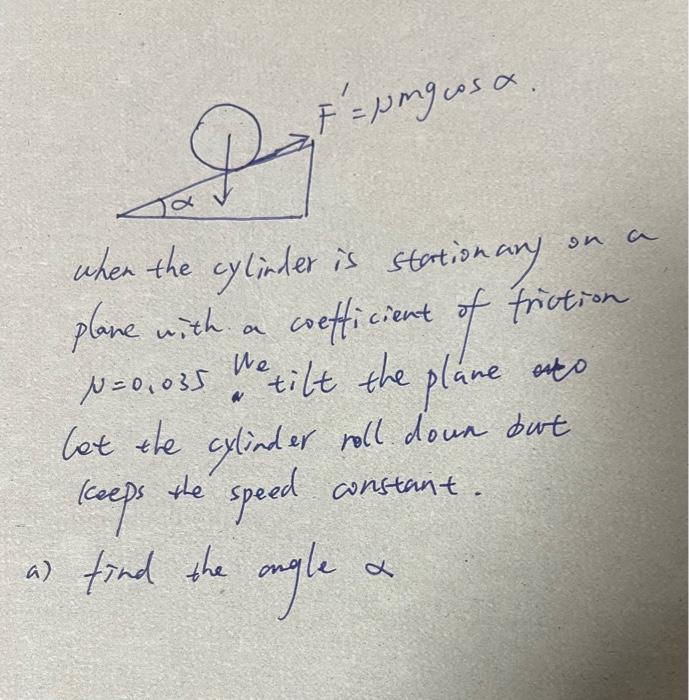 F' = μmg cos α.
α
when the cylinder is stationary on a
plane with a coefficient of friction
μ=0.035 We tilt the plane to
let the cylinder roll down but
keeps the speed constant.
a) find the angle α